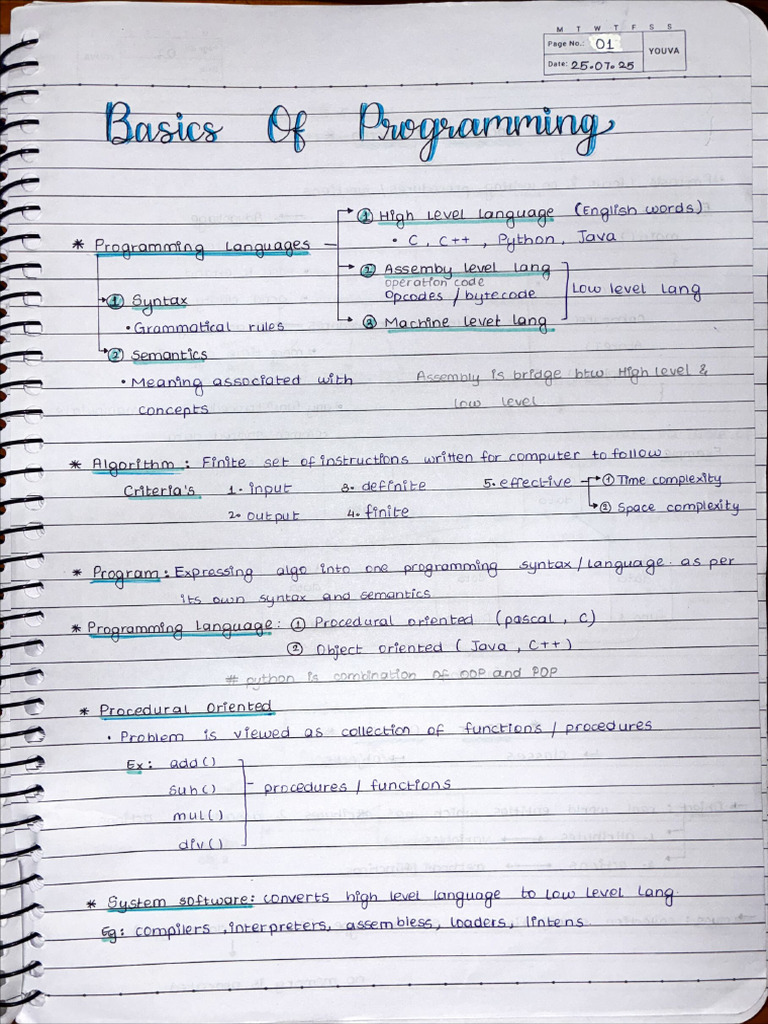 M T W T F S S
Page No.: 01
YOUVA
Date: 25.07.25
Basics Of Programming
* Programming Languages
① High Level Language (English words)
• C, C++, Python, Java
② Assemby level lang
operation code
Opcodes / bytecode
③ Machine level lang
Low level lang
① Syntax
• Grammatical rules
② Semantics
• Meaning associated with
concepts
Assembly is bridge btw High level &
low level
* Algorithm : Finite set of instructions written for computer to follow
Criteria's 1. input 3. definite 5. effective → ① Time complexity
2. output 4. finite ② Space complexity
* Program : Expressing algo into one programming syntax / language as per
its own syntax and semantics
* Programming Language : ① Procedural oriented (pascal, C)
② Object oriented (Java, C++)
# python is combination of OOP and POP
* Procedural Oriented
• Problem is viewed as collection of functions / procedures
Ex : add()
suh()
mul()
div()
procedures / functions
* System software : converts high level language to low level lang.
Eg : compilers, interpreters, assembless, loaders, lintens